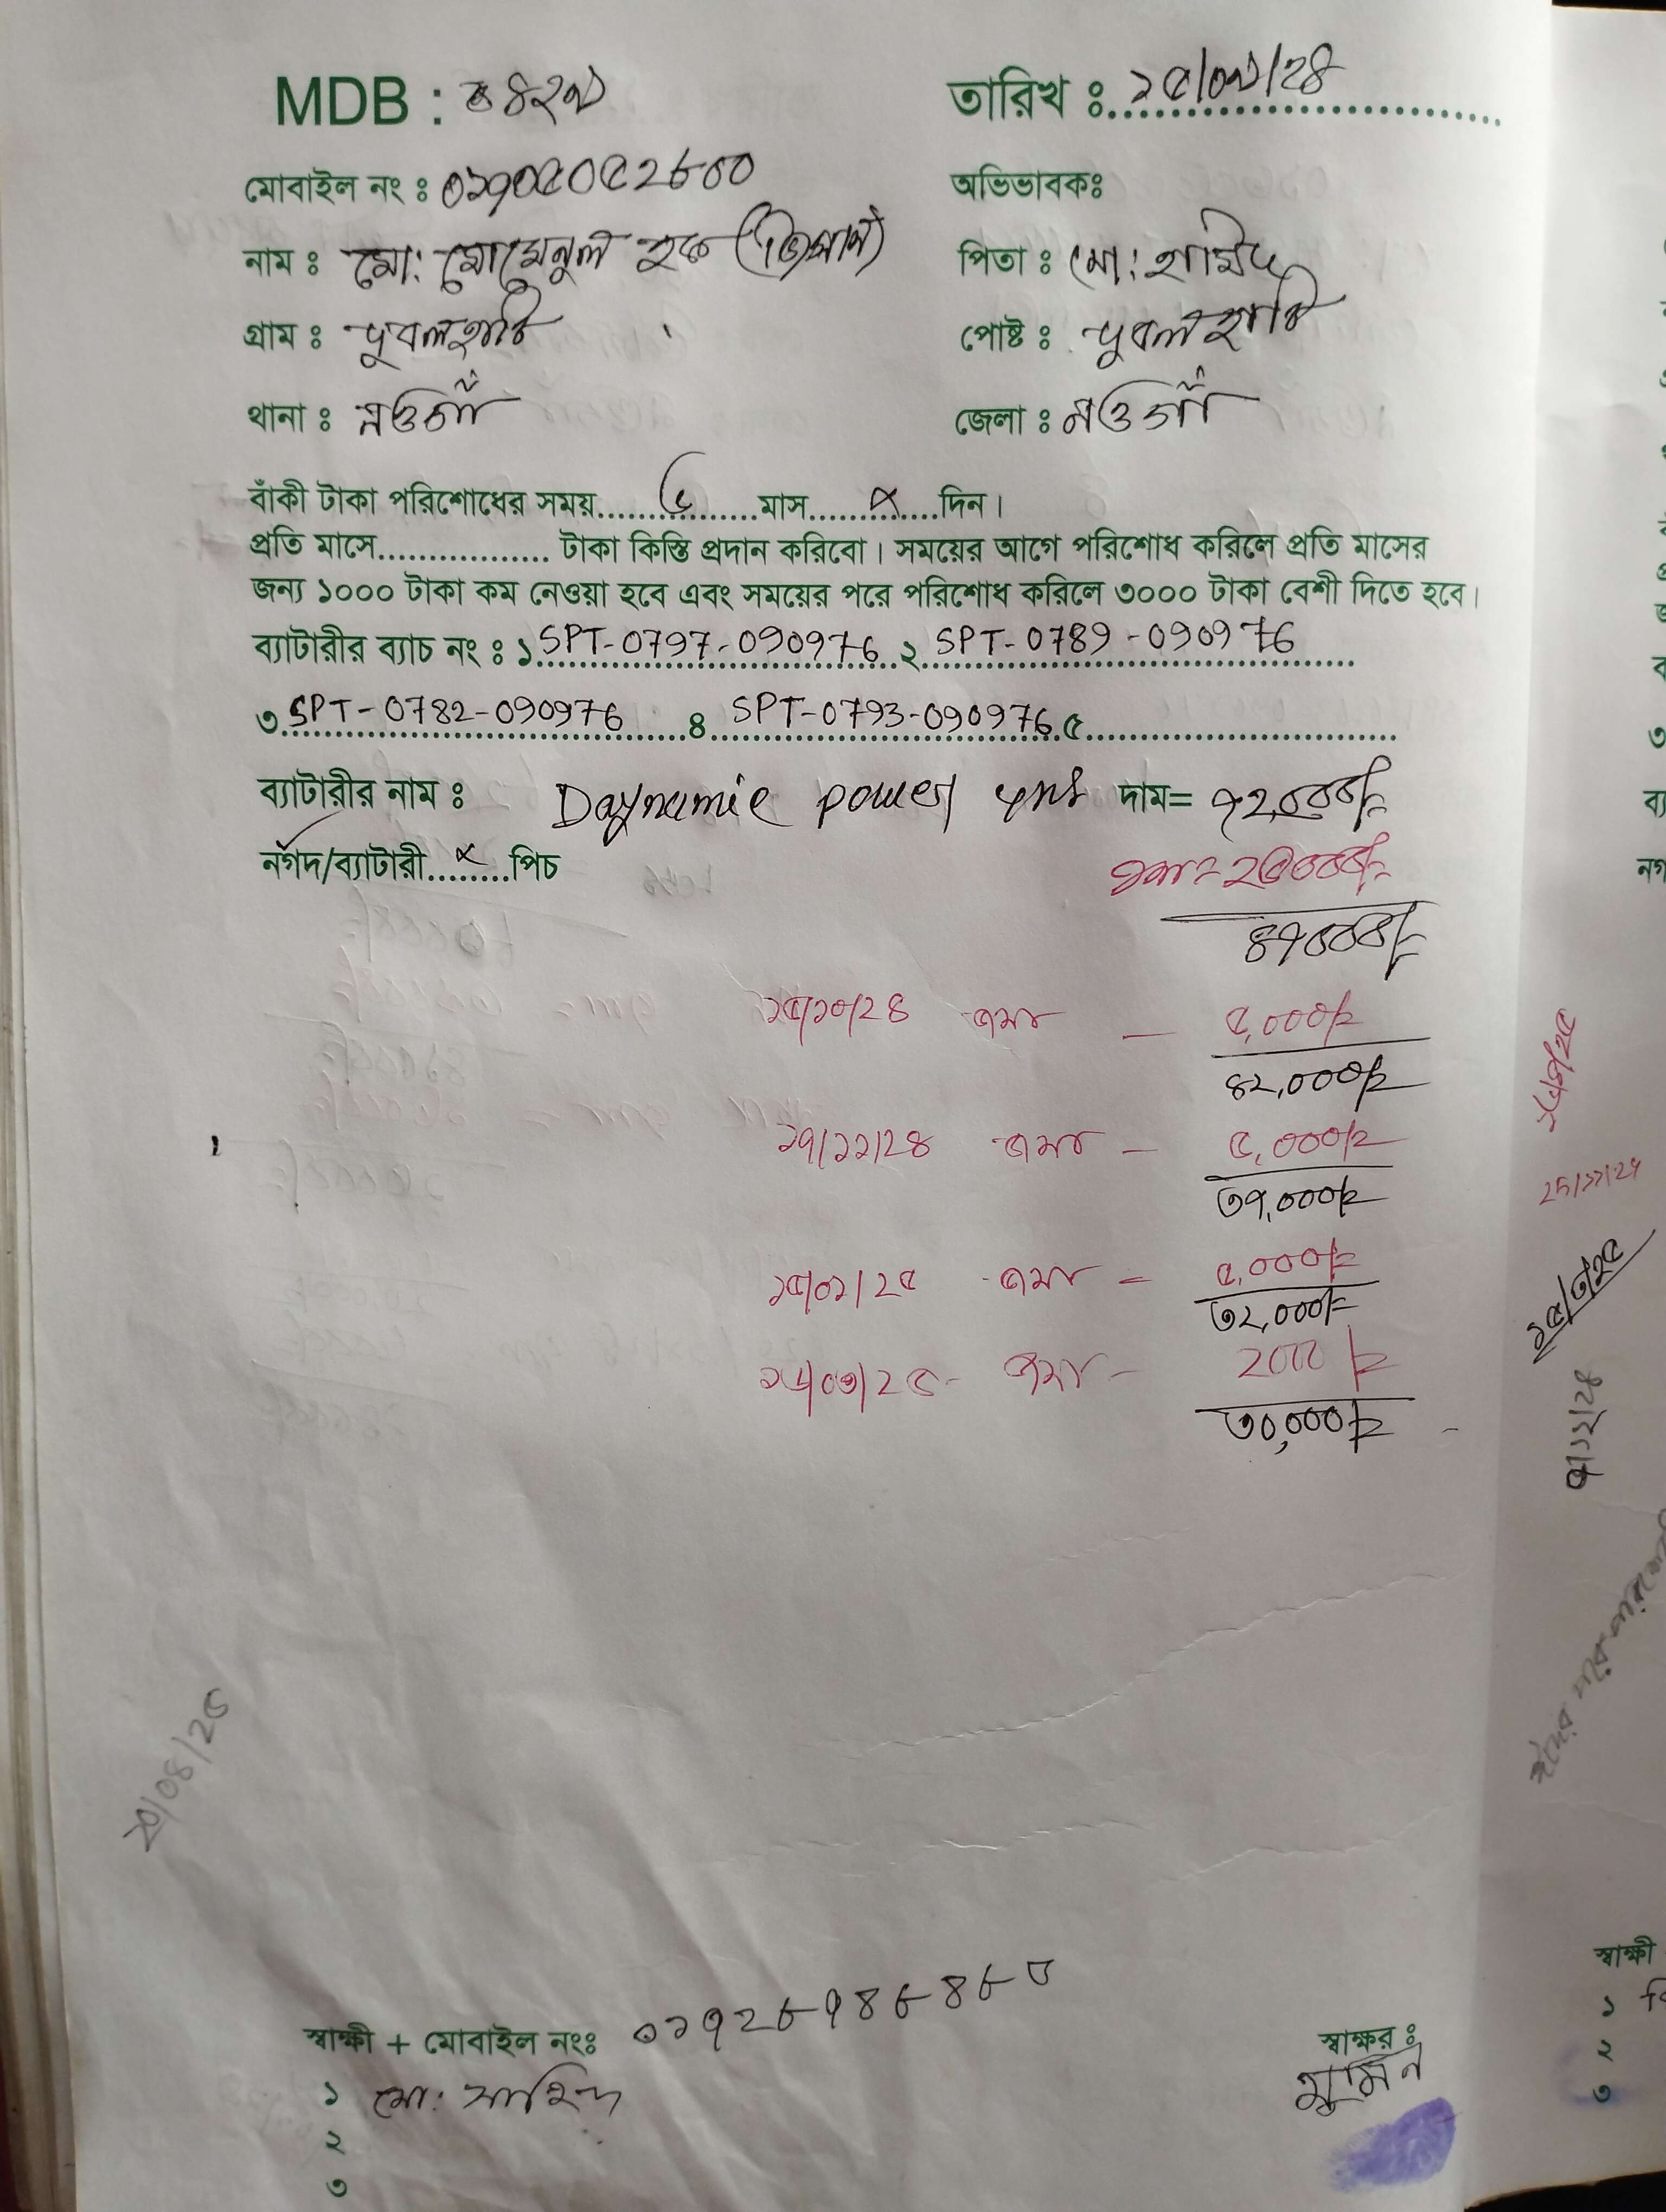 MDB : ৪২৯
তারিখ ঃ ১৫/০৯/২৪
মোবাইল নং ঃ ০১৭০৫০৫২৮০০
অভিভাবকঃ
নাম ঃ মো: মোমেনুল হক
পিতা ঃ মো: হামিদ
গ্রাম ঃ ধুবলহাটি
পোষ্ট ঃ ধুবলহাটি
থানা ঃ নওগাঁ
জেলা ঃ নওগাঁ
বাঁকী টাকা পরিশোধের সময়................মাস............দিন।
প্রতি মাসে................ টাকা কিস্তি প্রদান করিবো। সময়ের আগে পরিশোধ করিলে প্রতি মাসের
জন্য ১০০০ টাকা কম নেওয়া হবে এবং সময়ের পরে পরিশোধ করিলে ৩০০০ টাকা বেশী দিতে হবে।
ব্যাটারীর ব্যাচ নং ঃ ১ SPT-0797-090976 ২ SPT-0789-090976
৩ SPT-0782-090976 ৪ SPT-0793-090976 ৫
ব্যাটারীর নাম ঃ Daynamic power দাম= ৭২,০০০/=
নগদ/ব্যাটারী.........পিচ
জমা= ২৫০০০/=
৪৭০০০/=
১৫/১০/২৪ জমা — ৫,০০০/=
৪২,০০০/=
১৭/১১/২৪ জমা — ৫,০০০/=
৩৭,০০০/=
১৫/০১/২৫ জমা — ৫,০০০/=
৩২,০০০/=
জমা — ২০০০/=
৩০,০০০/=
২০/০৪/২৫
স্বাক্ষী + মোবাইল নংঃ ০১৭২৮৭৪৮৪৮০
স্বাক্ষর ঃ
মুমিন
১ মো:
২
৩
১৫/৩/২৫
স্বাক্ষী
১
২
৩